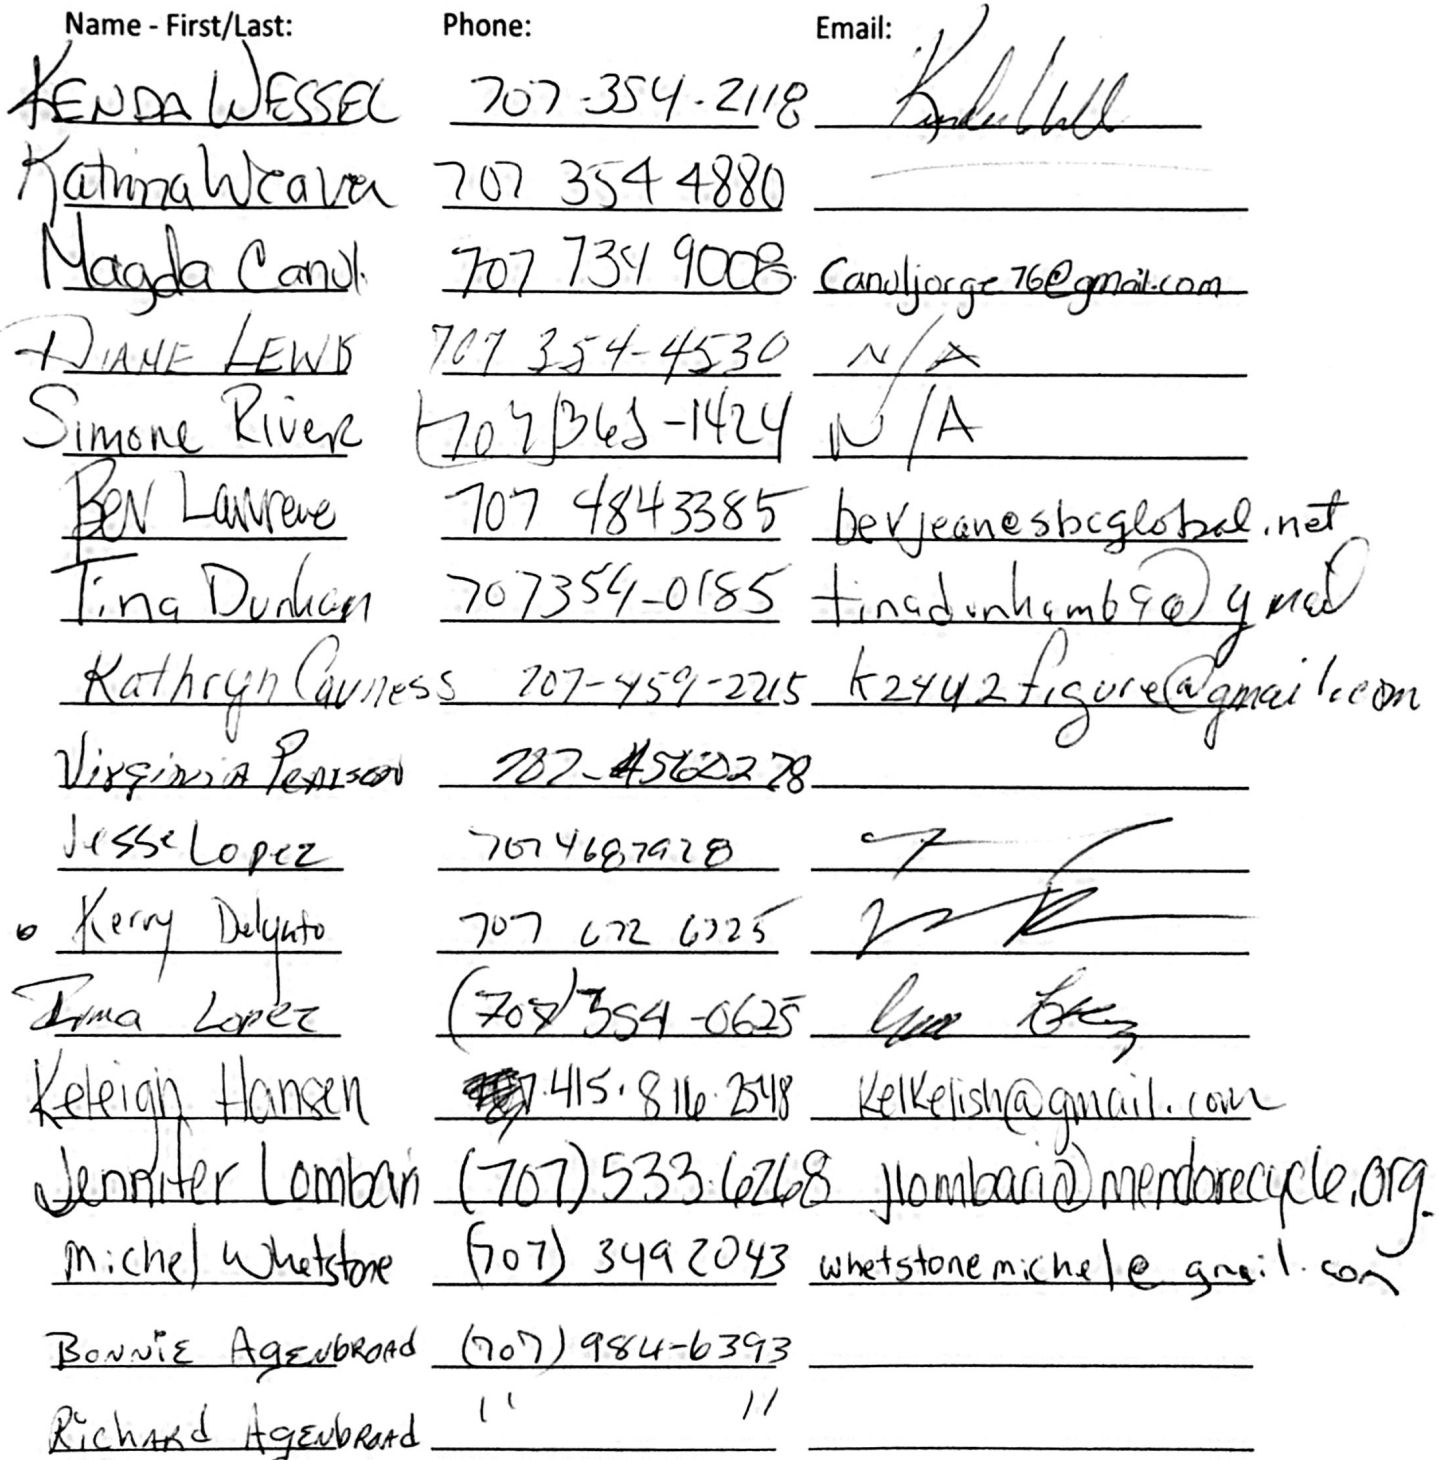 Name - First/Last: Phone: Email:
KENDA WESSEL 707-354-2118
Katrina Weaver 707 354 4880
Magda Canul 707 734 9008 Canuljorge76@gmail.com
DIANE LEWIS 707 354-4530 N/A
Simone River N/A
BEV Lawrence 707 4843385 bevjeanesbcglobal.net
Tina Dunham 707354-0185 tinadunham69@gmail
Kathryn Cavness 707-459-2215 k2442figure@gmail.com
Virginia Pearson
Jesse Lopez 707 4687928
Kerry Delgato 707 672 6225
Irma Lopez (707) 354-0625
Keleigh Hansen 415.816.2548 Kelkelish@gmail.com
Jennifer Lombari (707) 533.6268 jlombari@mendorecycle.org
Michel Whetstone (707) 349 2043 whetstonemichel@gmail.com
BONNIE AgENbROAd (707) 984-6393
RichARd AgENbROAd " "